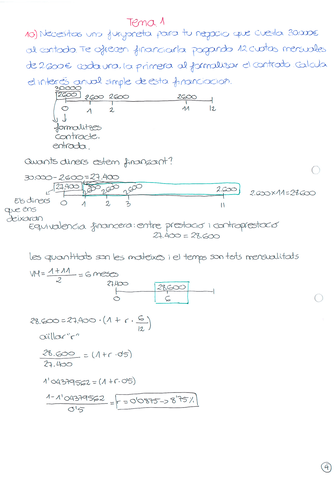 Tema 1
10) Necesitas una furgoneta para tu negocio que cuesta 30.000€
al contado. Te ofrecen financiarla pagando 12 cuotas mensuales
de 2.600€ cada una, la primera al formalizar el contrato. Calcula
el interés anual simple de esta financiación.
30.000
2.600 2.600 2.600 2.600
0 1 2 11 12
formalitzes
contracte.
entrada.
Quants diners estem finançant?
30.000-2.600=27.400
27.400 2.600 2.600 2.600 2.600 2.600×11=28.600
0 1 2 3 11
Els diners
que ens
deixaran
Equivalencia financera: entre prestació i contraprestació
27.400 = 28.600
les quantitats son les mateixes i el temps son tots mensualitats
VM= 1+11 / 2 = 6 mesos
27.400 28.600
0 6
28.600=27.400·(1+r·6/12)
aïllar "r"
28.600 / 27.400 = (1+r·0'5)
1'04379562=(1+r·0'5)
1-1'04379562 / 0'5 = r=0'0875→8'75%
4